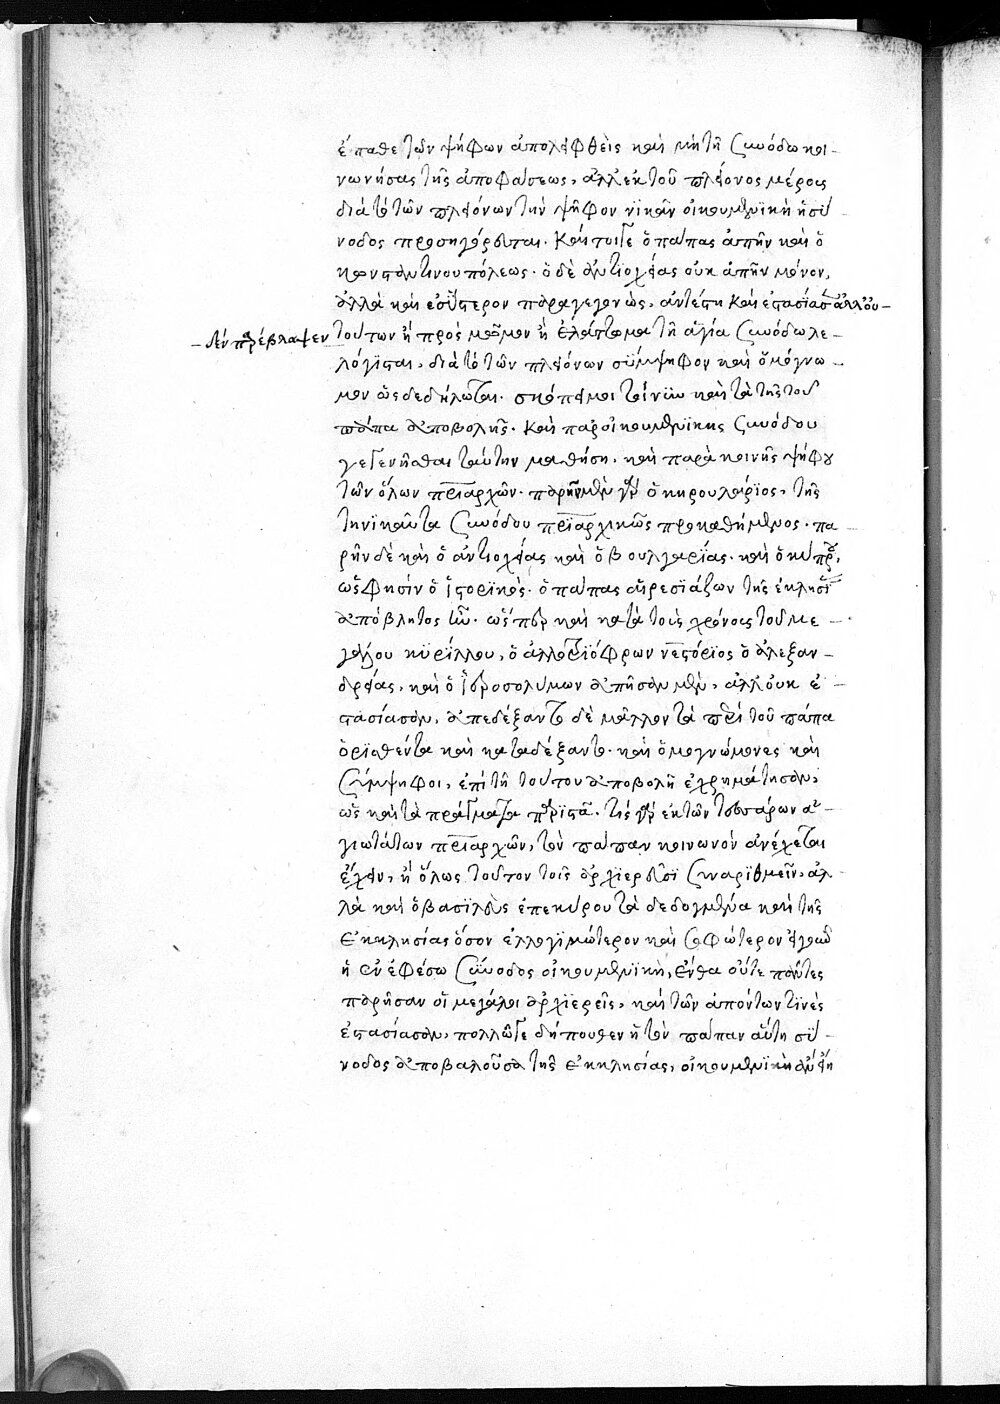 ἔπαθε τῶν ψήφων ἀπολειφθεὶς καὶ μὴ τῆ συνόδω κοι-
νωνήσας τῆς ἀποφάσεως, ἀλλ' ἐκ τοῦ πλείονος μέρους
διὰ τὸ τῶν πλειόνων τὴν ψῆφον νικᾶν οἰκουμενικὴ ἡ σύ-
νοδος προσηγόρευται. καίτοιγε ὁ πάπας ἀπῆν καὶ ὁ
κωνσταντινουπόλεως. ὁ δὲ ἀντιοχείας οὐκ ἀπῆν μόνον,
ἀλλὰ καὶ ἐσύστερον παραγεγονὼς, ἀντέστη καὶ ἐστασίασεν ἀλλ' οὐ-
-δὲν παρέβλαψεν τούτων ἢ πρὸς μῶμον ἢ ἐλάττωμα τῆ ἁγία συνόδω λε-
λόγισται, διὰ τὸ τῶν πλειόνων σύμψηφον καὶ ὁμόγνω-
μον ὡς δεδήλωται. σκόπει μοι τοίνυν καὶ τὰ τῆς τοῦ
πάπα ἀποβολῆς. καὶ παρ' οἰκουμενικῆς συνόδου
γεγενῆσθαι ταύτην μαθήση. καὶ παρὰ κοινῆς ψήφου
τῶν ὅλων πατριαρχῶν. παρῆν μὲν γὰρ ὁ κηρουλάριος, τῆς
τηνικαῦτα συνόδου πατριαρχικῶς προκαθήμενος. πα-
ρῆν δὲ καὶ ὁ ἀντιοχείας καὶ ὁ βουλγαρίας. καὶ ὁ κύπρου,
ὥς φησιν ὁ ἱστορικός. ὁ πάπας αἱρεσιάζων τῆς ἐκκλησίας
ἀπόβλητος ἦν. ὥσπερ καὶ κατὰ τοὺς χρόνους τοῦ με-
γάλου κυρίλλου, ὁ ἀλλοτριόφρων νεστόριος ὁ ἀλεξαν-
δρείας, καὶ ὁ ἱεροσολύμων ἀπῆσαν μὲν, ἀλλ' οὐκ ἐ-
στασίασαν, ἀπεδέξαντο δὲ μᾶλλον τὰ περὶ τοῦ πάπα
ὁρισθέντα καὶ κατεδέξαντο. καὶ ὁμογνώμονες καὶ
σύμψηφοι, ἐπὶ τῆ τούτου ἀποβολῆ ἐχρημάτησαν,
ὡς καὶ τὰ πράγματα παρίστα. τίς γὰρ ἐκ τῶν τεσσάρων ἁ-
γιωτάτων πατριαρχῶν, τὸν πάπαν κοινωνὸν ἀνέχεται
ἔχειν, ἢ ὅλως τοῦτον τοῖς ἀρχιερεῦσι συναριθμεῖν, ἀλ-
λὰ καὶ ὁ βασιλεὺς ἐπεκύρου τὰ δεδογμένα καὶ τῆς
ἐκκλησίας ὅσον ἐλλογιμώτερον καὶ σοφώτερον
ἡ ἐν ἐφέσω σύνοδος οἰκουμενικὴ, ἔνθα οὔτε πάντες
παρῆσαν οἱ μεγάλοι ἀρχιερεῖς, καὶ τῶν ἀπόντων τινὲς
ἐστασίασαν, πολλῶ γε δήπουθεν ἡ τὸν πάπαν αὕτη σύ-
νοδος ἀποβαλοῦσα τῆς ἐκκλησίας, οἰκουμενικὴ